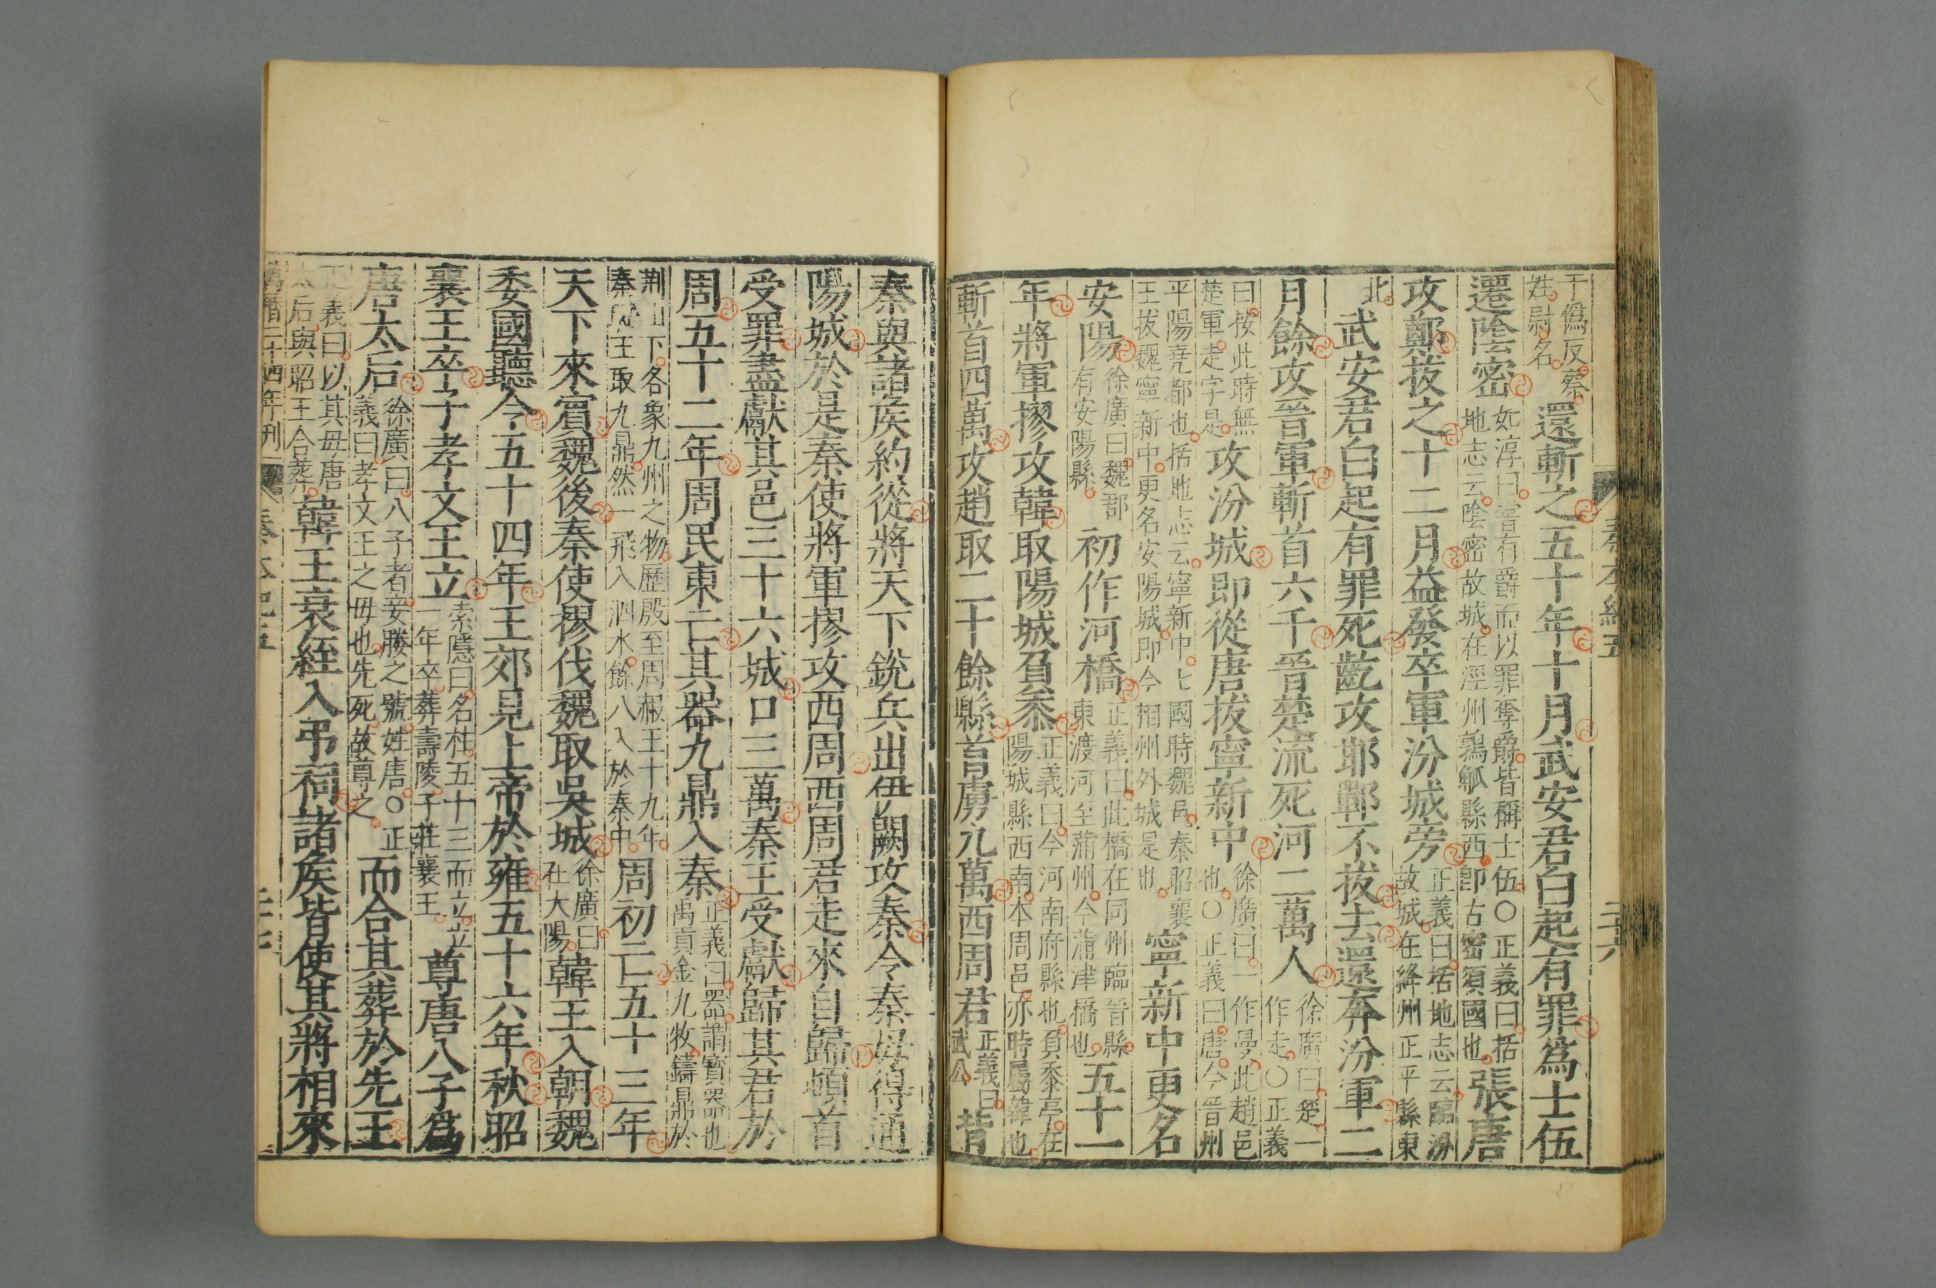 于僞反蔡
姓尉名
還斬之五十年十月武安君白起有罪爲士伍
遷陰密
如淳曰嘗有爵而以罪奪爵皆稱士伍○正義曰括
地志云陰密故城在涇州鶉觚縣西卽古密須國也
張唐
攻鄭拔之十二月益發卒軍汾城旁
正義曰括地志云臨汾
故城在絳州正平縣東
北
武安君白起有罪死齕攻邯鄲不拔去還奔汾軍二
月餘攻晉軍斬首六千晉楚流死河二萬人
徐廣曰楚一
作走○正義
曰按此時無
楚軍走字是
攻汾城即從唐拔寧新中
徐廣曰一作曼此趙邑
也○正義曰唐今晉州
平陽堯都也括地志云寧新中七國時魏邑秦昭襄
王拔魏寧新中更名安陽城即今相州外城是也
寧新中更名
安陽
徐廣曰魏郡
有安陽縣
初作河橋
正義曰此橋在同州臨晉縣
東渡河至蒲州今蒲津橋也
五十一
年將軍摎攻韓取陽城負黍
正義曰今河南府縣也負黍亭在
陽城縣西南本周邑亦時屬韓也
斬首四萬攻趙取二十餘縣首虜九萬西周君
正義曰
武公
背
秦與諸侯約從將天下銳兵出伊闕攻秦令秦毋得通
陽城於是秦使將軍摎攻西周西周君走來自歸頓首
受罪盡獻其邑三十六城口三萬秦王受獻歸其君於
周五十二年周民東亡其器九鼎入秦
正義曰器謂寶器也
禹貢金九牧鑄鼎於
荆山下各象九州之物歷殷至周赧王十九年
秦昭王取九鼎然一飛入泗水餘八入於秦中
周初亡五十三年
天下來賓魏後秦使摎伐魏取吳城
徐廣曰
在大陽
韓王入朝魏
委國聽令五十四年王郊見上帝於雍五十六年秋昭
襄王卒子孝文王立
索隱曰名柱五十三而立立
一年卒葬壽陵子莊襄王
尊唐八子爲
唐太后
徐廣曰八子者妾媵之號姓唐○正
義曰孝文王之母也先死故尊之
而合其葬於先王
正義曰以其母唐
太后與昭王合葬
韓王衰絰入弔祠諸侯皆使其將相來
秦本紀五
二十六
萬曆二十四年刊
秦本紀五
二十七